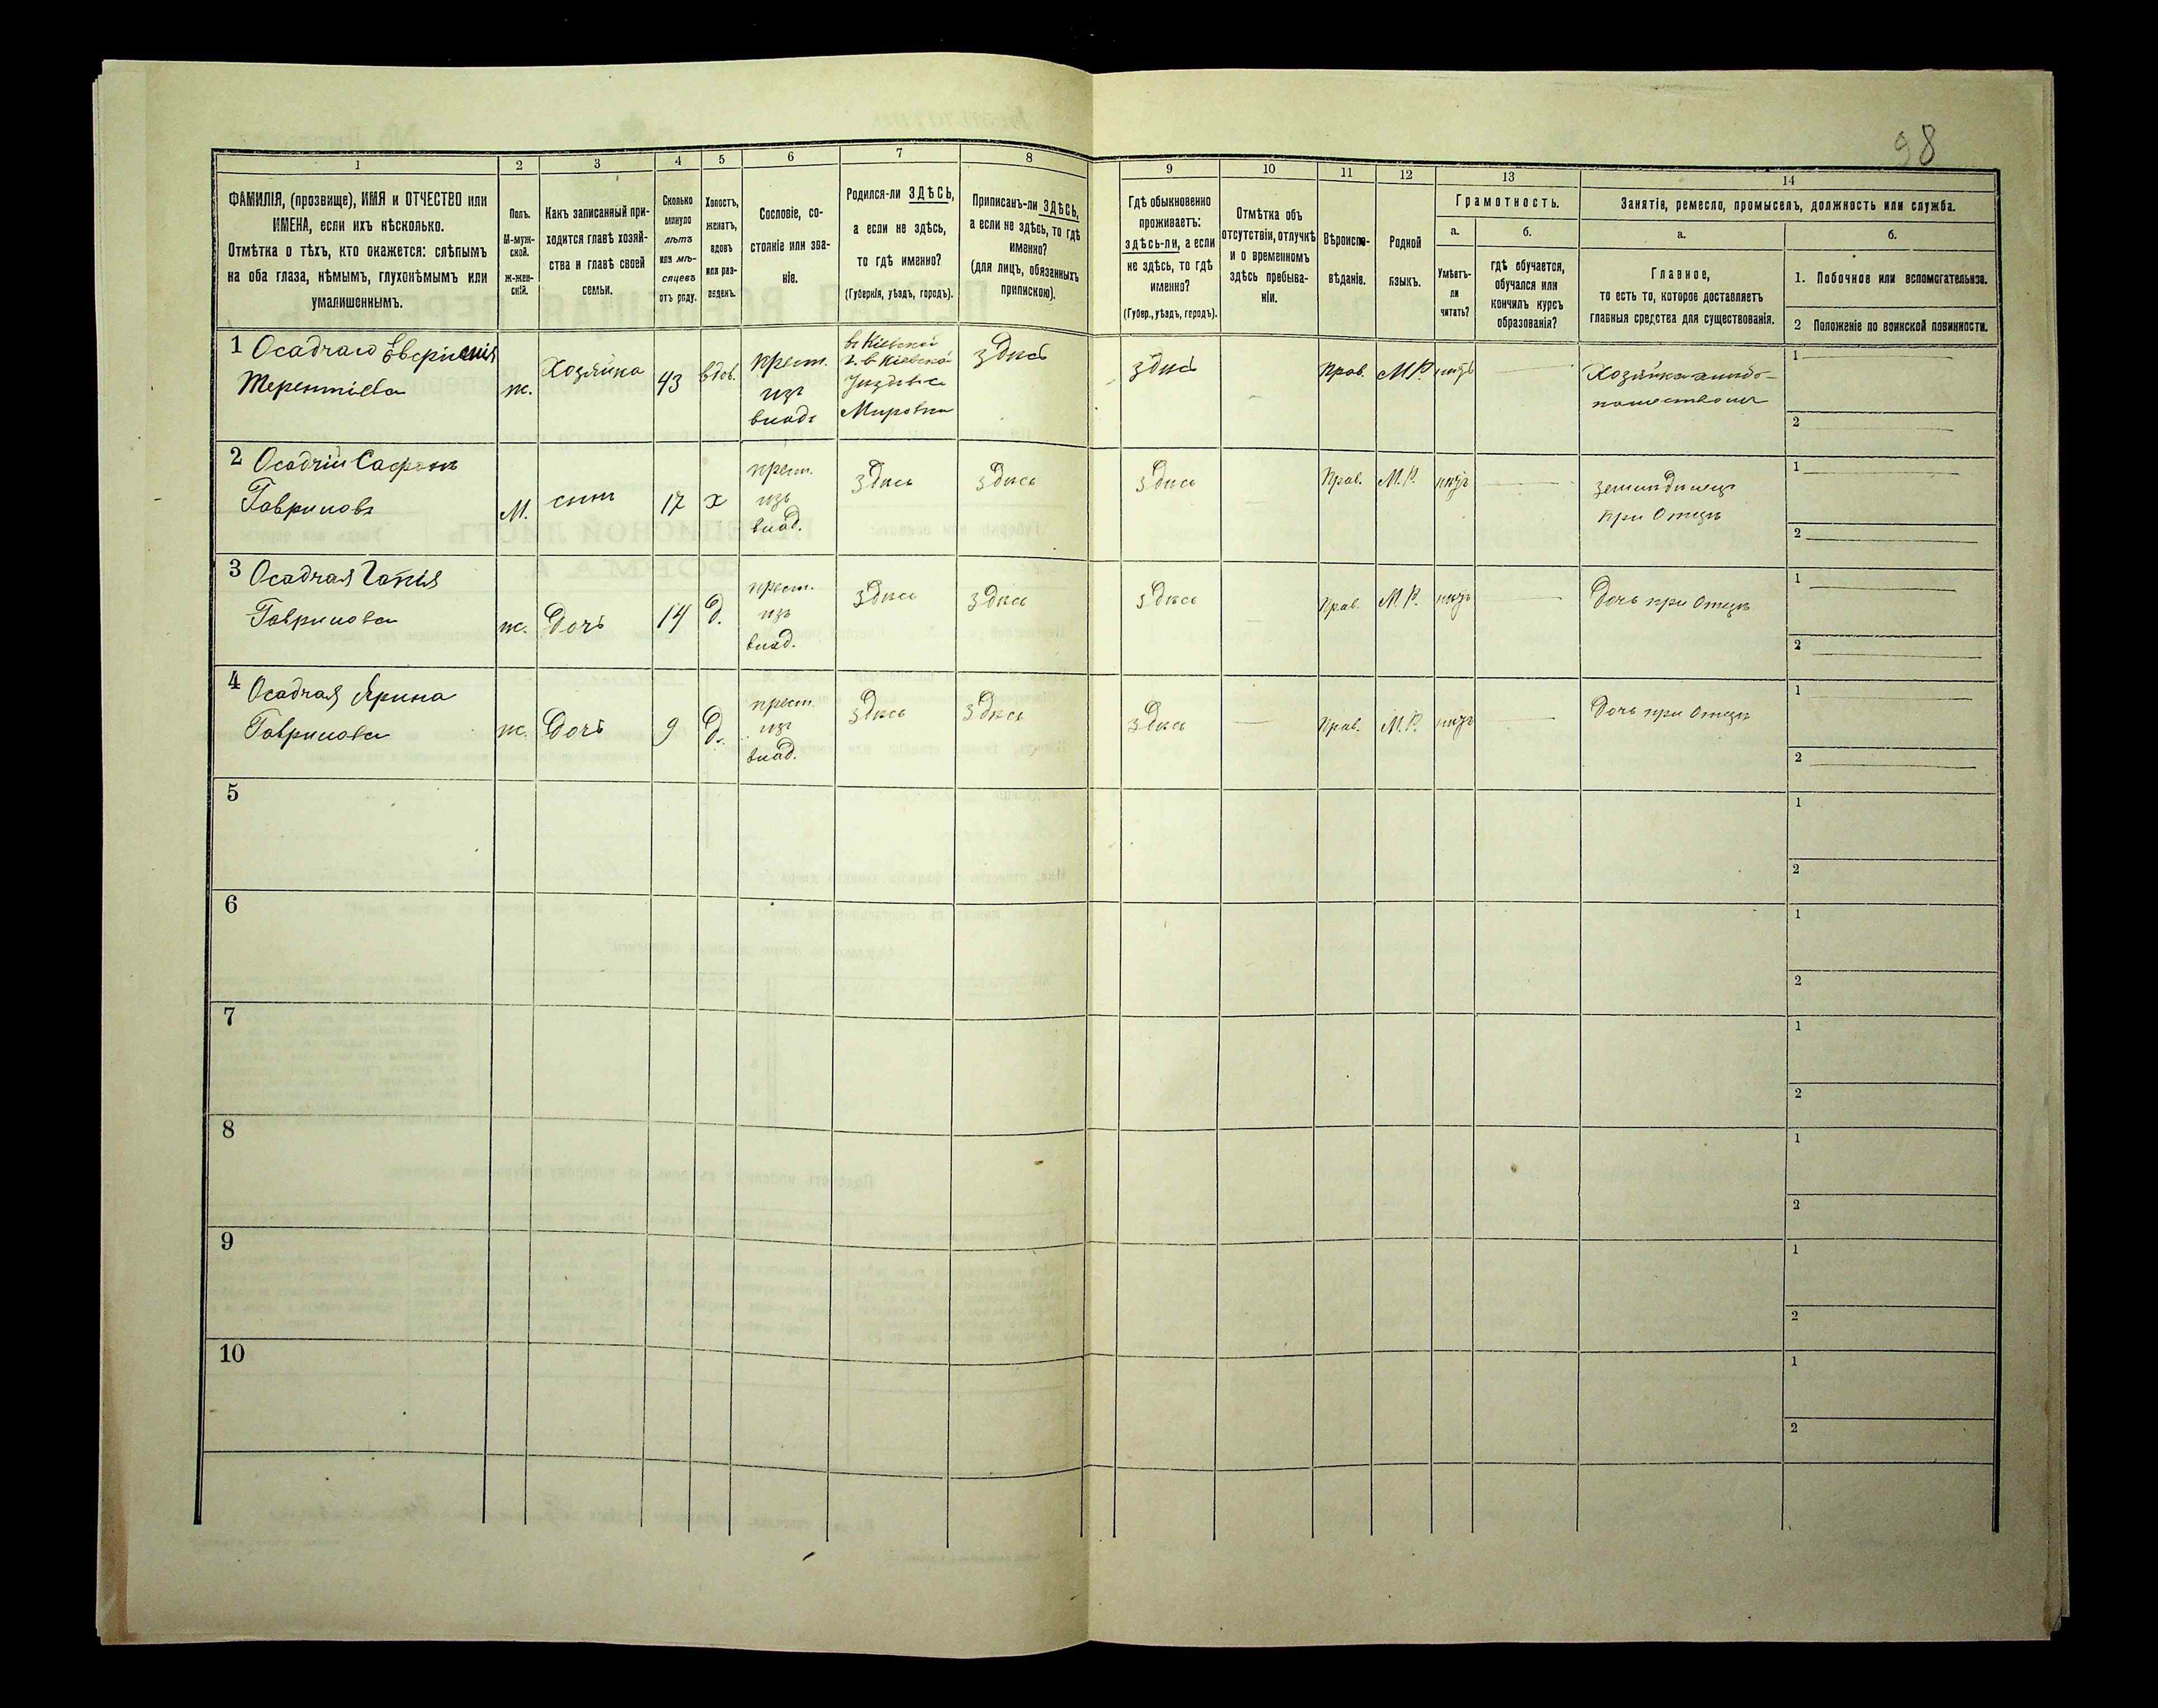 98
1 2 3 4 5 6 7 8 9 10 11 12 13 14
ФАМИЛІЯ, (прозвище), ИМЯ и ОТЧЕСТВО или
ИМЕНА, если ихъ нѣсколько.
Отмѣтка о тѣхъ, кто окажется: слѣпымъ
на оба глаза, нѣмымъ, глухонѣмымъ или
умалишеннымъ.
Полъ.
М-муж-
ской.
Ж-жен-
скій.
Какъ записанный при-
ходится главѣ хозяй-
ства и главѣ своей
семьи.
Сколько
минуло
лѣтъ
или мѣ-
сяцевъ
отъ роду.
Холостъ,
женатъ,
вдовъ
или раз-
веденъ.
Сословіе, со-
стояніе или зва-
ніе.
Родился-ли ЗДѢСЬ,
а если не здѣсь,
то гдѣ именно?
(Губернія, уѣздъ, городъ).
Приписанъ-ли ЗДѢСЬ,
а если не здѣсь, то гдѣ
именно?
(для лицъ, обязанныхъ
припискою).
Гдѣ обыкновенно
проживаетъ:
здѣсь-ли, а если
не здѣсь, то гдѣ
именно?
(Губер., уѣздъ, городъ).
Отмѣтка объ
отсутствіи, отлучкѣ
и о временномъ
здѣсь пребыва-
ніи.
Вѣроиспо-
вѣданіе.
Родной
языкъ.
Грамотность.
а.
Умѣетъ-
ли
читать?
б.
гдѣ обучается,
обучался или
кончилъ курсъ
образованія?
Занятія, ремесло, промыселъ, должность или служба.
а.
Главное,
то есть то, которое доставляетъ
главныя средства для существованія.
б.
1. Побочное или вспомогательное.
2 Положеніе по воинской повинности.
1 Осадчаго
Терентіева
ж.
Хозяйка
43
вдов.
крест.
изъ
влад.
въ Кіевской
г. в Кіевско
Уѣздѣ в с
Мировка
здѣсь
здѣсь
Прав.
М.Р.
нѣтъ
Хозяйка
1
2
2 Осадчій Сафронъ
Гавриловъ
М.
сынъ
17
х
крест.
изъ
влад.
здѣсь
здѣсь
здѣсь
Прав.
М.Р.
нѣтъ
земледѣлецъ
при Отцѣ
1
2
3 Осадчая Гапія
Гаврилова
ж.
Дочь
14
д.
крест.
изъ
влад.
здѣсь
здѣсь
здѣсь
Прав.
М.Р.
нѣтъ
Дочь при Отцѣ
1
2
4 Осадчая Ярина
Гаврилова
ж.
Дочь
9
д.
крест.
изъ
влад.
здѣсь
здѣсь
здѣсь
Прав.
М.Р.
нѣтъ
Дочь при Отцѣ
1
2
5
1
2
6
1
2
7
1
2
8
1
2
9
1
2
10
1
2